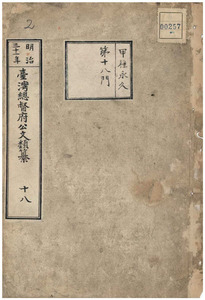 2
明治
三十二年
臺灣總督府公文類纂
十八
甲種永久
第十八門
00257